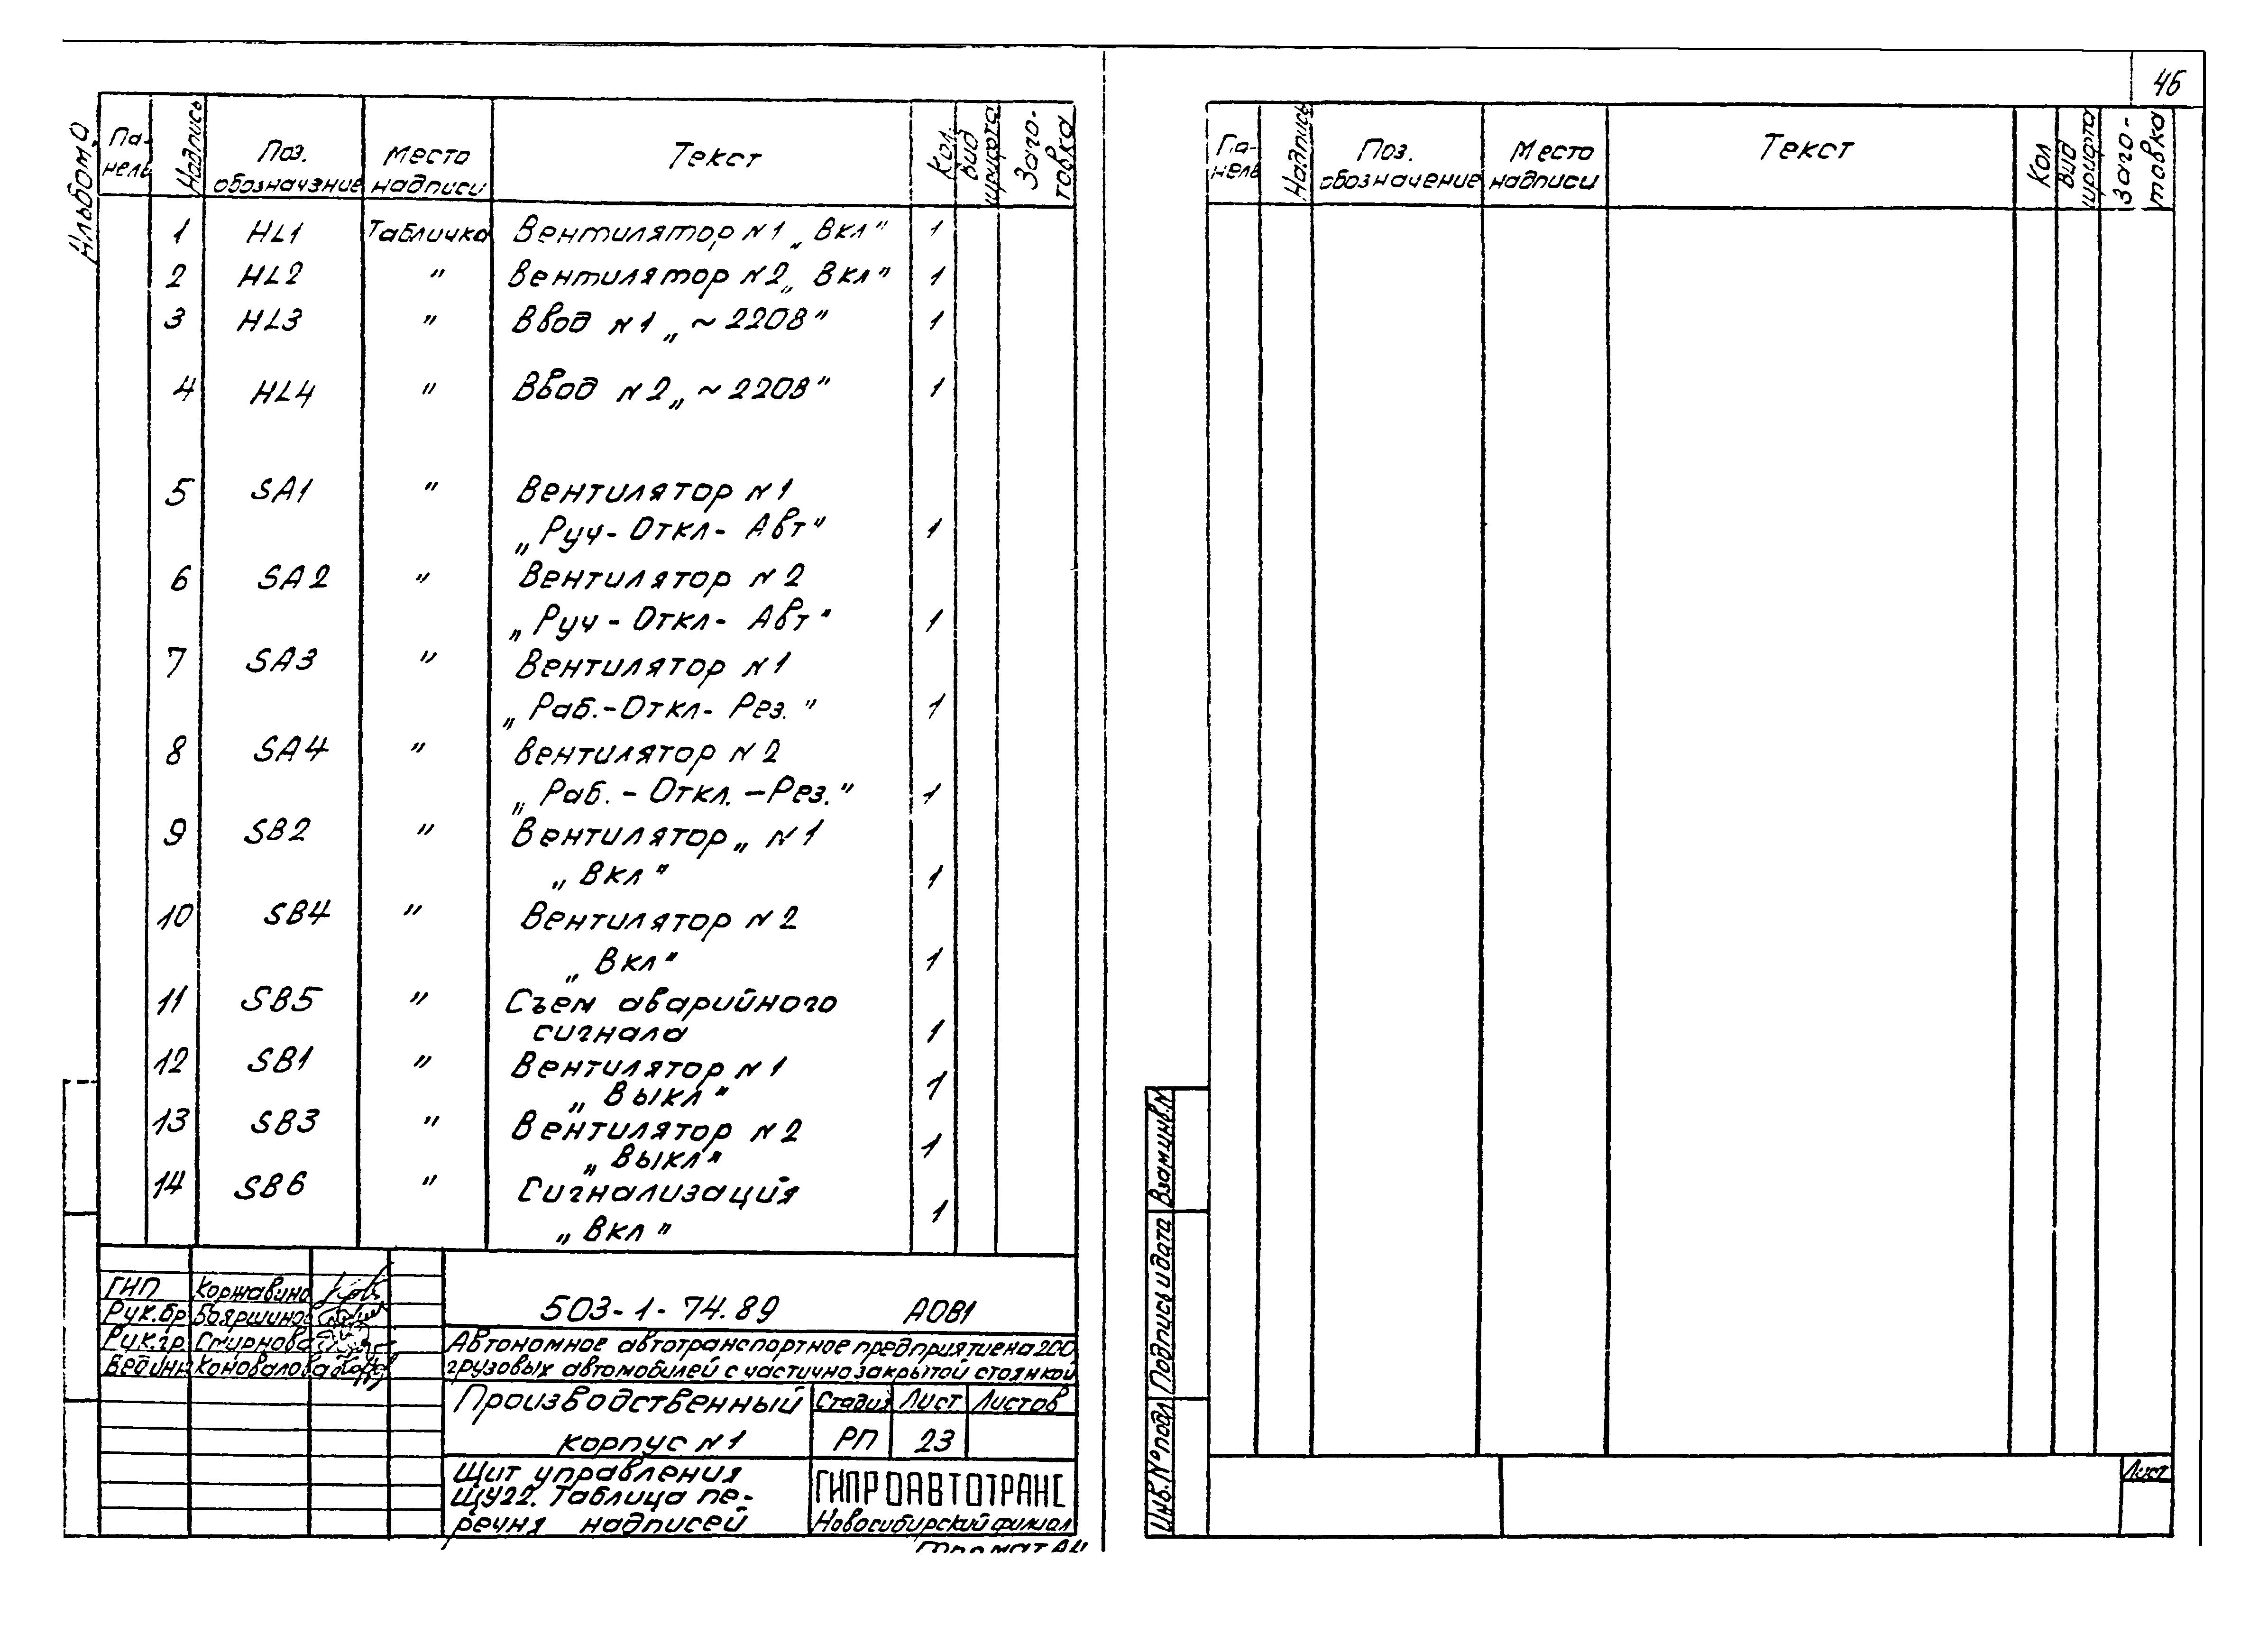 46
Альбом 9
Па-нель Надпись Поз. обозначение Место надписи Текст Кол. Вид шрифта Заго-товка
1 HL1 Табличка Вентилятор N1 „Вкл" 1
2 HL2 " Вентилятор N2 „Вкл" 1
3 HL3 " Ввод N1 „~220В" 1
4 HL4 " Ввод N2 „~220В" 1
5 SA1 " Вентилятор N1
„Руч-Откл-Авт" 1
6 SA2 " Вентилятор N2
„Руч-Откл-Авт" 1
7 SA3 " Вентилятор N1
„Раб.-Откл-Рез." 1
8 SA4 " Вентилятор N2
„Раб.-Откл.-Рез." 1
9 SB2 " Вентилятор „ N1
„Вкл" 1
10 SB4 " Вентилятор N2
„Вкл" 1
11 SB5 " Съем аварийного
сигнала 1
12 SB1 " Вентилятор N1
„Выкл" 1
13 SB3 " Вентилятор N2
„Выкл" 1
14 SB6 " Сигнализация
„Вкл" 1
ГИП Коржавина
Рук.бр Бояршинов
Рук.гр. Смирнова
Вед инж Коновалова
503-1-74.89 АОВ1
Автономное автотранспортное предприятие на 200
грузовых автомобилей с частично закрытой стоянкой
Производственный
корпус N1
Стадия Лист Листов
РП 23
Щит управления
ЩУ22. Таблица пе-
речня надписей
ГИПРОАВТОТРАНС
Новосибирский филиал
Формат А4
Па-нель Надпись Поз. обозначение Место надписи Текст Кол Вид шрифта Заго-товка
Взам.инв.N
Подпись и дата
Инв.N° подл
Лист